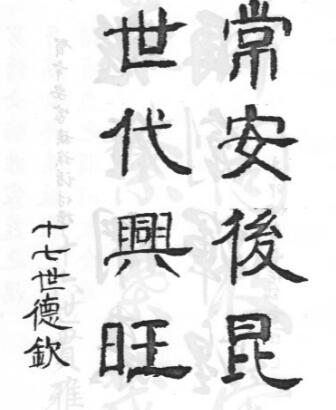 常安後昆
世代興旺
十七世德欽